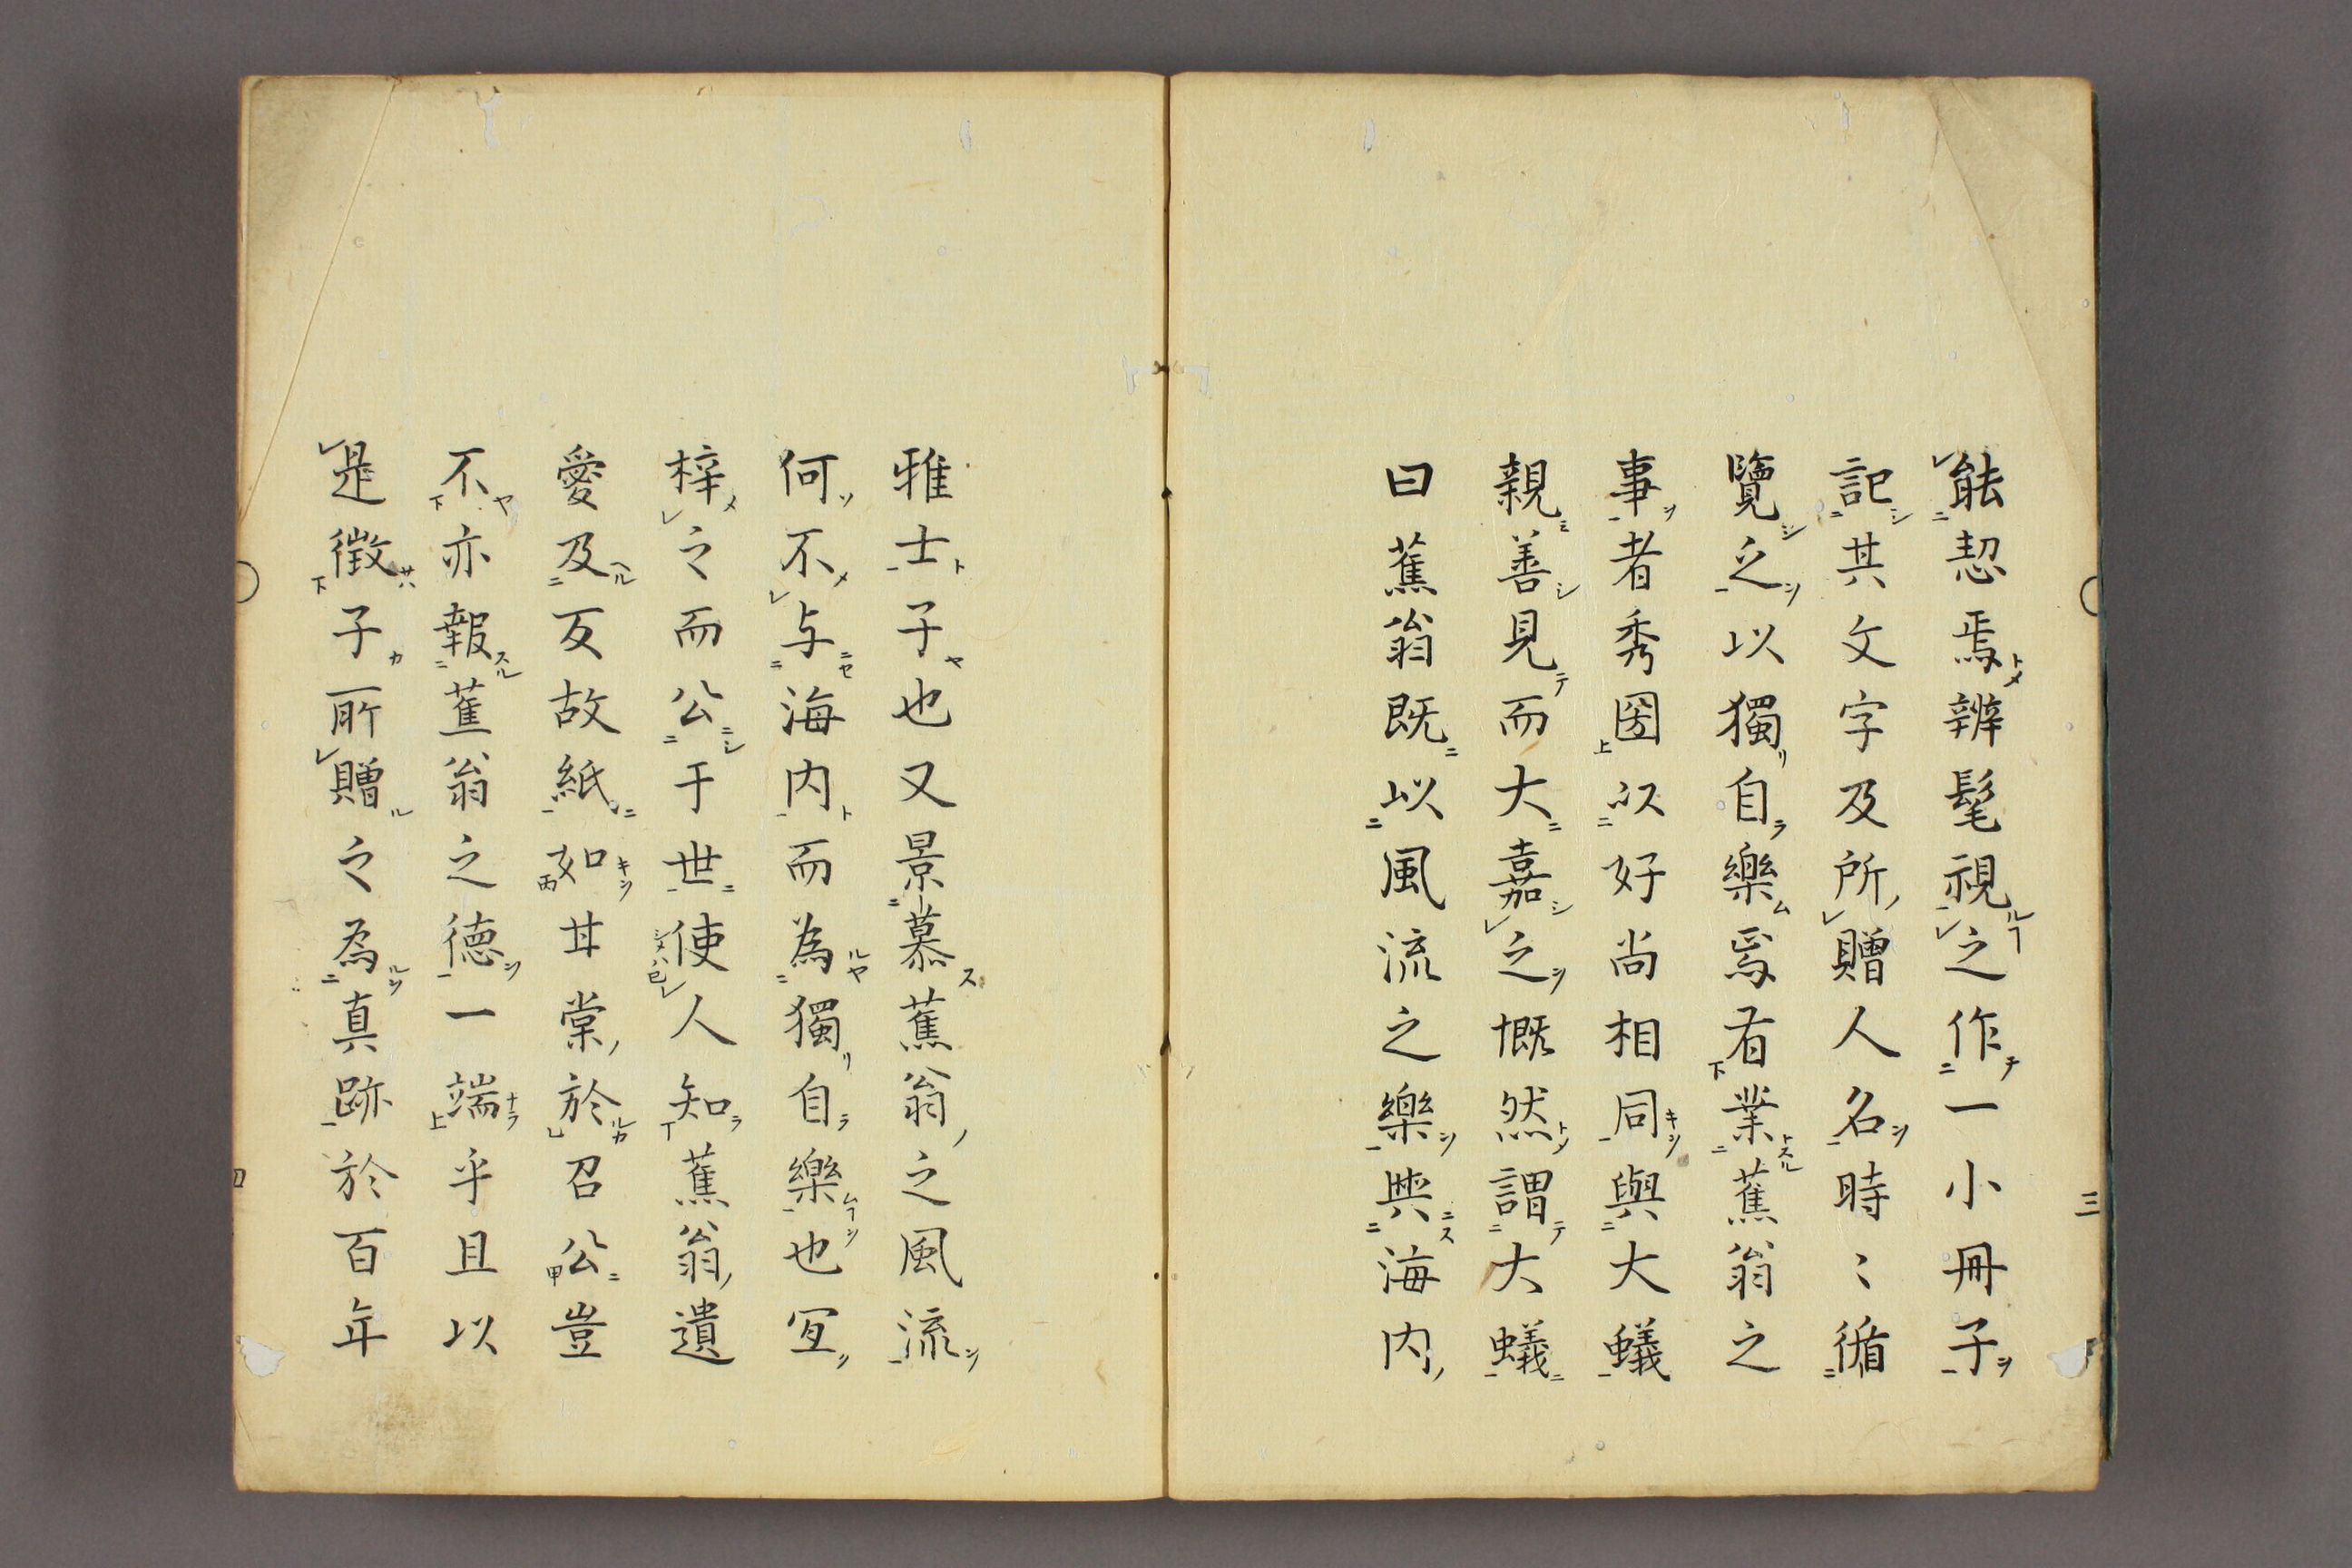 能恝焉辨髦視之作一小冊子
記其文字及所贈人名時〻循
覽之以獨自樂焉有業蕉翁之
事者秀圀以好尚相同與大蟻
親善見而大嘉之慨然謂大蟻
曰蕉翁既以風流之樂與海内
三
雅士子也又景慕蕉翁之風流
何不与海内而為獨自樂也宜
梓之而公于世使人知蕉翁遺
愛及反故紙如甘棠於召公豈
不亦報蕉翁之德一端乎且以
是徴子所贈之為真跡於百年